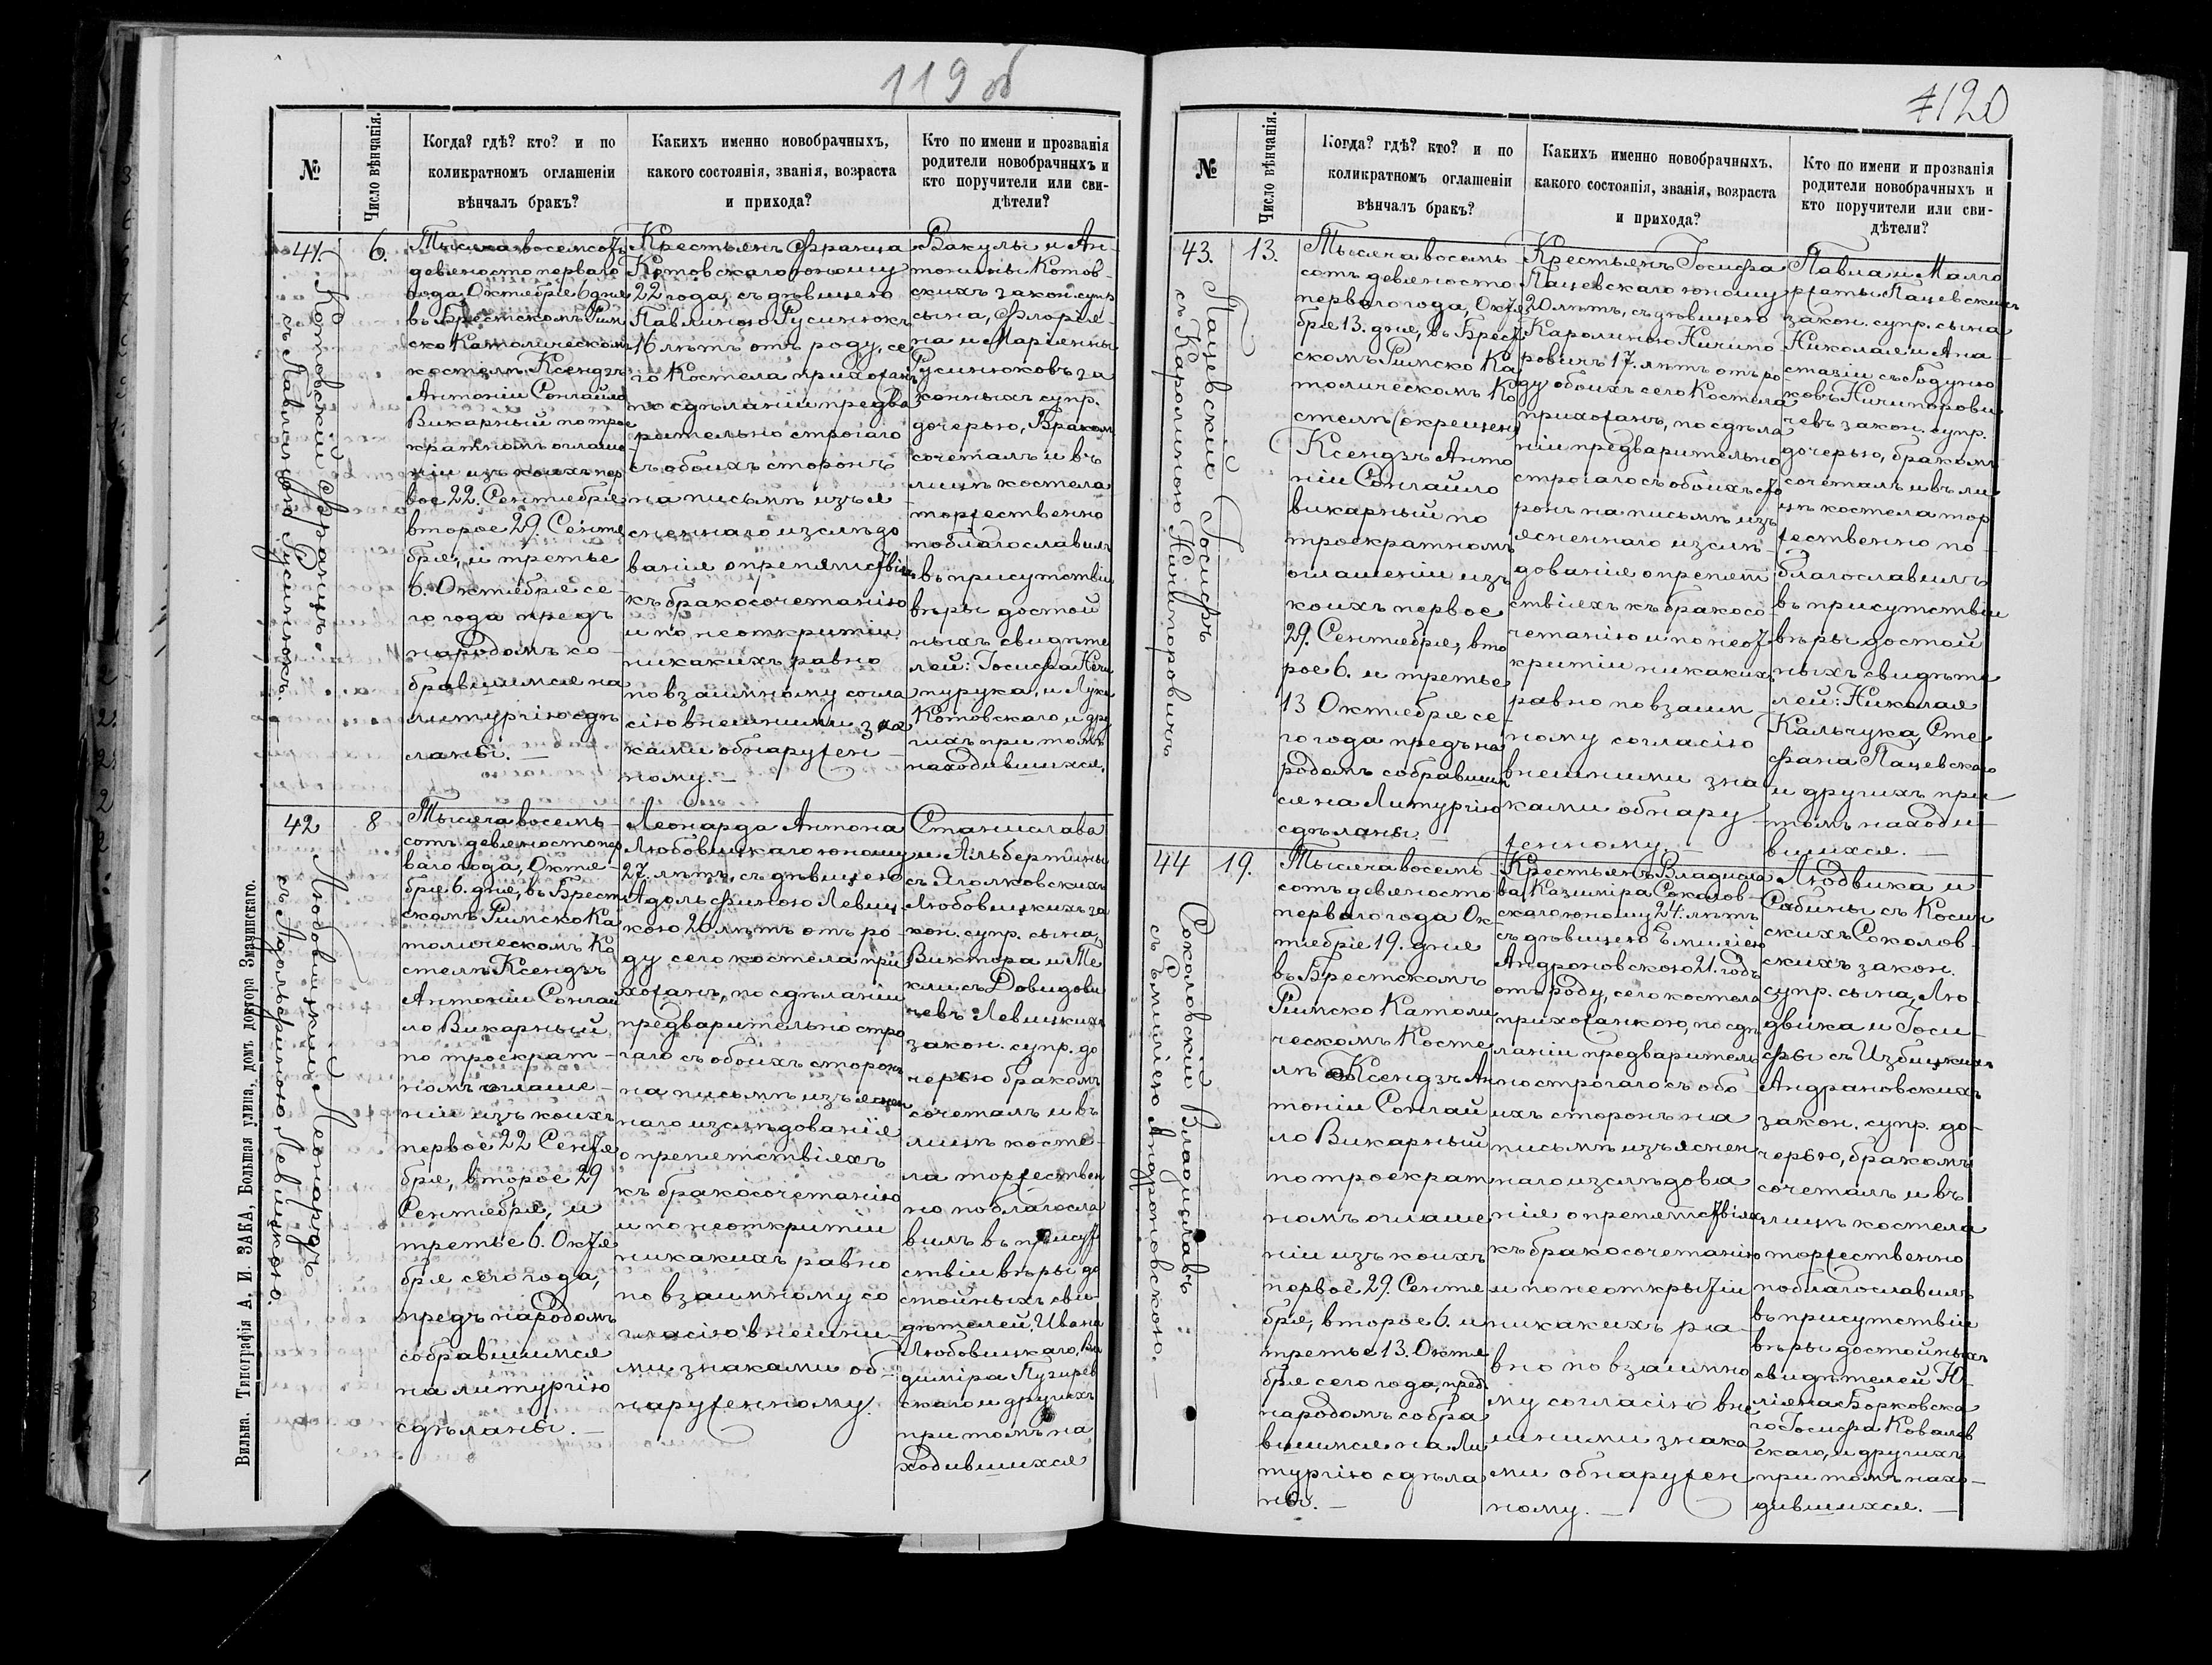 119 об
№
Число вѣнчанія.
Когда? гдѣ? кто? и по
коликратномъ оглашеніи
вѣнчалъ бракъ?
Какихъ именно новобрачныхъ,
какого состоянія, званія, возраста
и прихода?
Кто по имени и прозванія
родители новобрачныхъ и
кто поручители или сви-
дѣтели?
41.
Котовскій Францъ
съ Павлиною Русинюкъ.
6.
Тысяча восемсотъ
девяносто перваго
года, Октября 6 дня
въ Брестскомъ Рим
ско Католическом
костелѣ Ксендзъ
Антоній Сонгайло
Викарный по трое
кратномъ оглаше
ніи изъ коихъ пер
вое 22. Сентября
второе 29 Сентя
бря, и третье
6. Октября се-
го года предъ
народомъ со-
бравшимся на
литургію сдѣ
ланы. —
Крестьянъ Франца
Котовскаго юношу
22 года, съ дѣвицею
Павлиною Русинюкъ
16 лѣтъ отъ роду, се
го Костела прихожанъ
по сдѣланіи предва
рительно строгаго
съ обоихъ сторонъ
на письмѣ изъя
сненнаго изслѣдо
ванія о препятствіяхъ
къ бракосочетанію
и по неоткритіи
никакихъ равно
по взаимному согла
сію внешними зна
ками обнаружен
ному. —
Вакулы и Ан-
тонины Котов-
скихъ закон. супр
сына, Флоріа-
на и Маріянны
Русинюковъ за
конныхъ супр.
дочерью, Браком
сочеталъ и въ
лицѣ костела
торжественно
поблагославилъ
въ присутствіи
вѣры достой
ныхъ свидѣте
лей: Іосифа Ничи
пурука, и Луки
Котовскаго и дру
гихъ при томъ
находившихся.
42
Любовицкій Леонардъ
съ Адольфиною Левицкою.
8
Тысяча восемь
сотъ девяносто пер
ваго года, Октя-
бря 6. дня, въ Брест
скомъ Римско Ка
толическомъ Ко
стелѣ Ксендзъ
Антоній Сонгай
ло Викарный
по троекрат-
номъ оглаше-
ніи изъ коихъ
первое 22 Сентя
бря, второе 29
Сентября, и
третье 6. Октя
бря сего года,
предъ народомъ
собравшимся
на литургію
сдѣланы. —
Леонарда Антона
Любовицкаго юношу
27. лѣтъ, съ дѣвицею
Адольфиною Левиц
кою 26 лѣтъ отъ ро
ду сего костела при
хожанъ, по сдѣланіи
предварительно стро
гаго съ обоихъ сторонъ
на письмѣ изъяснен
наго изслѣдованія
о препятствіяхъ
къ бракосочетанію
и по неоткритіи
никакихъ равно
по взаимному со
гласію внешни-
ми знаками об-
наруженному.
Станислава
и Альбертины
съ Яголковскихъ
Любовицкихъ за
кон. супр. сына,
Виктора и Те
кли съ Довидови
чевъ Левицкихъ
закон. супр. до
черью бракомъ
сочеталъ и въ
лицѣ косте-
ла торжествен
но поблагосла
вилъ въ присут
ствіи вѣры до
стойныхъ сви-
дѣтелей, Ивана
Любовицкаго, Вла
диміра Пузырев
скаго и другихъ
при томъ на
ходившихся
Вильна. Типографія А. И. ЗАКА, Большая улица, домъ доктора Змачинскаго.
120
№
Число вѣнчанія.
Когда? гдѣ? кто? и по
коликратномъ оглашеніи
вѣнчалъ бракъ?
Какихъ именно новобрачныхъ,
какого состоянія, званія, возраста
и прихода?
Кто по имени и прозванія
родители новобрачныхъ и
кто поручители или сви-
дѣтели?
43.
Пацевскій Іосифъ
съ Каролиною Ничипоровичъ
13.
Тысяча восемь
сотъ девяносто
перваго года, Октя
бря 13. дня, въ Брест
скомъ Римско Ка
толическомъ Ко
стелѣ (окрещен)
Ксендзъ Анто
ній Сонгайло
викарный по
троекратномъ
оглашеніи изъ
коихъ первое
29. Сентября, вто
рое 6. и третье
13 Октября се-
го года предъ на
родомъ собравшим
ся на Литургію
сдѣланы.
Крестьянъ Іосифа
Пацевскаго юношу
20 лѣтъ, съ дѣвицею
Каролиною Ничипо
ровичъ 17. лѣтъ отъ ро
ду обоихъ сего Костела
прихожанъ, по сдѣла
ніи предварительно
строгаго съ обоихъ сто
ронъ на письмѣ изъ
ясненнаго изслѣ-
дованія о препят
ствіяхъ къ бракосо
четанію и по неот
критіи никакихъ
равно по взаим-
ному согласію
внешними зна
ками обнару-
женному. —
Павла и Малго
ржаты Пацевскихъ
закон. супр. сына
Николая и Ана
стазіи съ Годуню
ковъ Ничипорови
чевъ закон. супр.
дочерью, бракомъ
сочеталъ и въ ли
цѣ костела тор
жественно по-
благославилъ
въ присутствіи
вѣры достой
ныхъ свидѣте
лей: Николая
Кальчука, Сте
фана Пацевскаго
и другихъ при
томъ находи-
вшихся. —
44
Соколовскій Владиславъ
съ Эмиліею Андроновскою. —
19.
Тысяча восемь
сотъ девяносто
перваго года Ок-
тября 19. дня
въ Брестскомъ
Римско Католи
ческомъ Косте
лѣ Ксендзъ Ан
тоній Сонгай
ло Викарный
по троекрат
номъ оглаше
ніи изъ коихъ
первое 29. Сентя
бря, второе 6. и
третье 13. Октя
бря сего года, предъ
народомъ собра
вшимся на Ли
тургію сдѣла
ны. —
Крестьянъ Владисла
ва Казиміра Соколов-
скаго юношу 24. лѣтъ
съ дѣвицею Эмиліею
Андроновскою 21. годъ
отъ роду, сего костела
прихожанкою, по сдѣ
ланіи предваритель
но строгаго съ обо-
ихъ сторонъ на
письмѣ изъяснен
наго изслѣдова
нія о препятствіяхъ
къ бракосочетанію
и по неоткрытіи
никакихъ ра-
вно по взаимно
му согласію вне
шними знака
ми обнаружен
ному. —
Людвика и
Сабины съ Косин
скихъ Соколов-
скихъ закон.
супр. сына, Лю-
двика и Іоси-
фы съ Избицкихъ
Андрановскихъ
закон. супр. до-
черью, бракомъ
сочеталъ и въ
лицѣ костела
торжественно
поблагославилъ
въ присутствіи
вѣры достойныхъ
свидѣтелей Ю-
ліяна Борковска
го Іосифа Ковалев
скаго, и другихъ
при томъ нахо-
дившихся. —